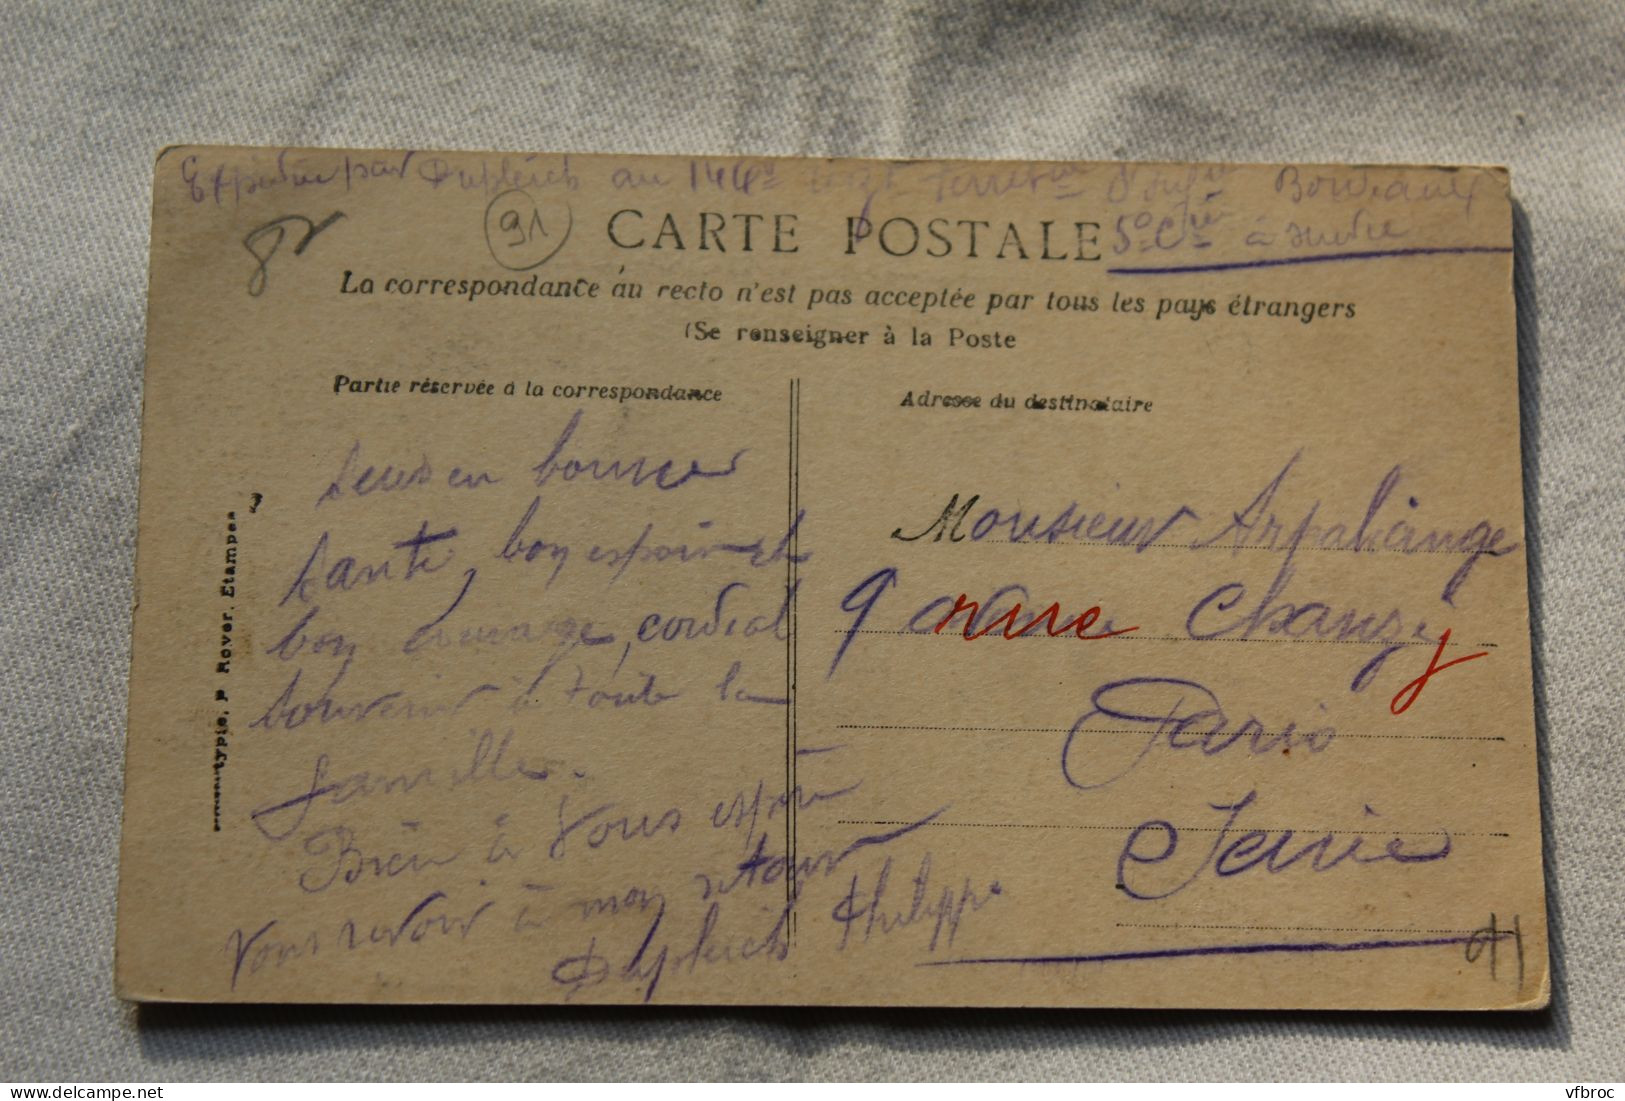 Expédié par Dupleich au 144e Regt Territ d'Infie Bordeaux
5e Cie à
82
91
CARTE POSTALE
La correspondance au recto n'est pas acceptée par tous les pays étrangers
(Se renseigner à la Poste
Partie réservée à la correspondance
Adresse du destinataire
en bonne
santé, bon espoir et
bon courage, cordial
souvenir à toute la
famille.
Bien à Vous espoir
Vous revoir à mon retour
Dupleich Philippe
Monsieur Arpaliange
9 rue Chanzy
Paris
Seine
91
typie, P Royer. Etampes
vfbroc